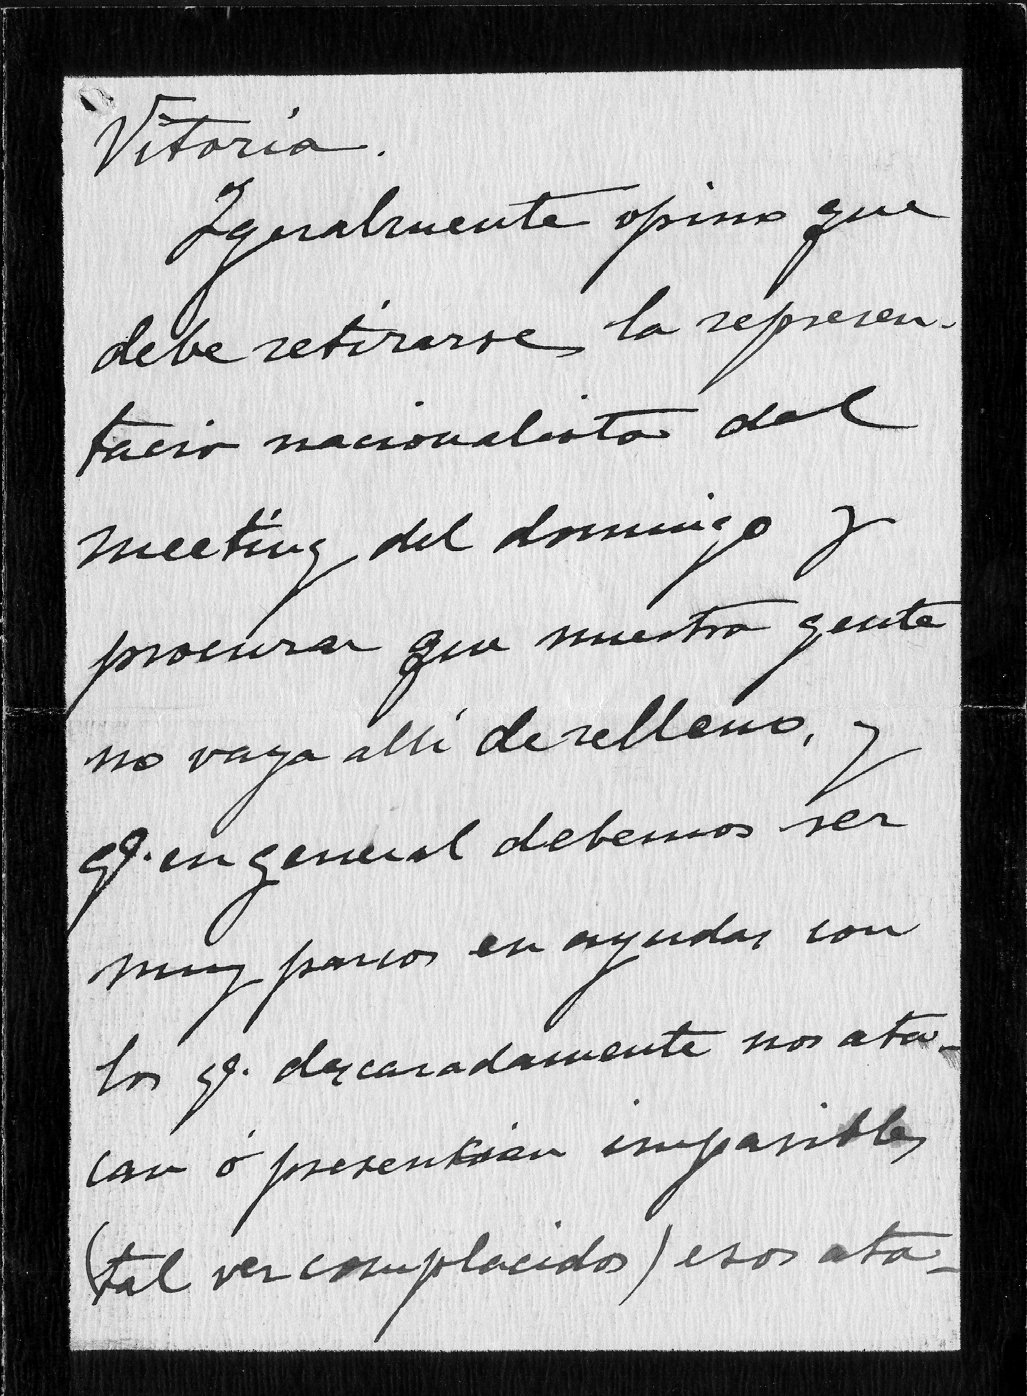 Vitoria.
Igualmente opino que
debe retirarse la represen-
tacio nacionalista del
meeting del domingo y
procurar que nuestra gente
no vaya allí de relleno, y
qᵉ. en general debemos ser
muy parcos en ayudas con
los qᵉ. descaradamente nos ata-
can ó presencian impasibles
(tal vez complacidos) esos ata-